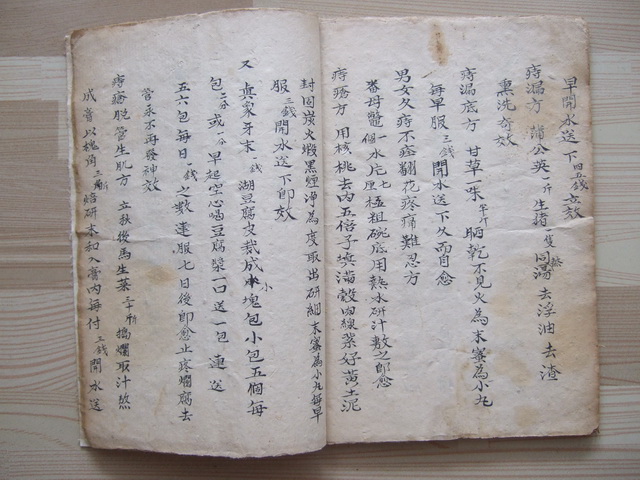 早開水送下四五錢立效
痔漏方 蒲公英一斤 生猪一隻 同湯 去浮油 去渣
熏洗奇效
痔漏底方 甘草一味半斤 晒乾不見火為末蜜為小丸
每早服三錢開水送下久而自愈
男女久痔不痊翻花疼痛難忍方
番母鱉一個水片七厘極粗碗底用熱水研汁敷之即愈
痔瘡方 用核桃去肉五倍子填滿殼內線紮好黃土泥
封固炭火煅黑煙淨為度取出研細末蜜為小丸每早
服三錢開水送下即效
又 真象牙末一錢 湖豆腐皮裁成小塊包小包五個每
包二分或一分早起空心喝豆腐漿一口送一包 連送
五六包每日一錢之數連服七日後即愈止疼爛腐去
管永不再發神效
痔瘡脫管生肌方 立秋後馬生菜三十斤搗爛取汁熬
成膏以槐角三斤焙研末和入膏內每付三錢開水送